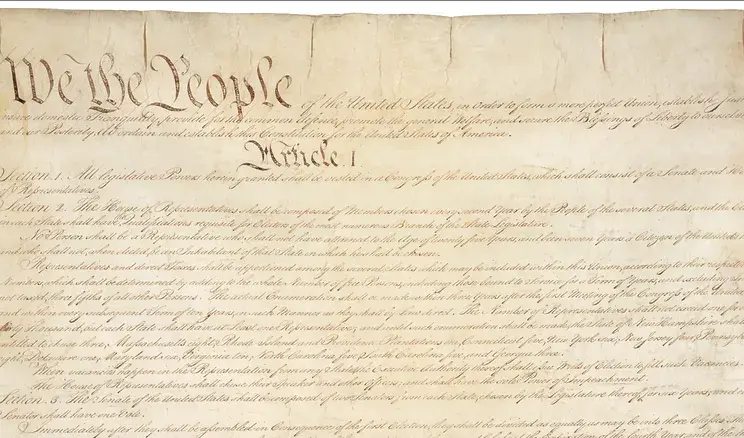 We the People of the United States, in Order to form a more perfect Union, establish Just
insure domestic Tranquility, provide for the common defence, promote the general Welfare, and secure the Blessings of Liberty to ourselves
and our Posterity, do ordain and establish this Constitution for the United States of America.
Article. I.
Section. 1. All legislative Powers herein granted shall be vested in a Congress of the United States, which shall consist of a Senate and Ho
of Representatives.
Section. 2. The House of Representatives shall be composed of Members chosen every second Year by the People of the several States, and the Ele
in each State shall have Qualifications requisite for Electors of the most numerous Branch of the State Legislature.
No Person shall be a Representative who shall not have attained to the Age of twenty five Years, and been seven Years a Citizen of the United S
and who shall not, when elected, be an Inhabitant of that State in which he shall be chosen.
Representatives and direct Taxes shall be apportioned among the several States which may be included within this Union, according to their respective
Numbers, which shall be determined by adding to the whole Number of free Persons, including those bound to Service for a Term of Years, and excluding
not taxed, three fifths of all other Persons. The actual Enumeration shall be made within three Years after the first Meeting of the Congress of the United
and within every subsequent Term of ten Years, in such Manner as they shall by Law direct. The Number of Representatives shall not exceed one for
thirty Thousand, but each State shall have at Least one Representative; and until such enumeration shall be made, the State of New Hampshire shall
entitled to chuse three, Massachusetts eight, Rhode-Island and Providence Plantations one, Connecticut five, New-York six, New Jersey four, Pennsyl
eight, Delaware one, Maryland six, Virginia ten, North Carolina five, South Carolina five, and Georgia three.
When vacancies happen in the Representation from any State, the Executive Authority thereof shall issue Writs of Election to fill such Vacancies.
The House of Representatives shall chuse their Speaker and other Officers; and shall have the sole Power of Impeachment.
Section. 3. The Senate of the United States shall be composed of two Senators from each State, chosen by the Legislature thereof, for six Years; and
Senator shall have one Vote.
Immediately after they shall be assembled in Consequence of the first Election, they shall be divided as equally as may be into three Classes. The